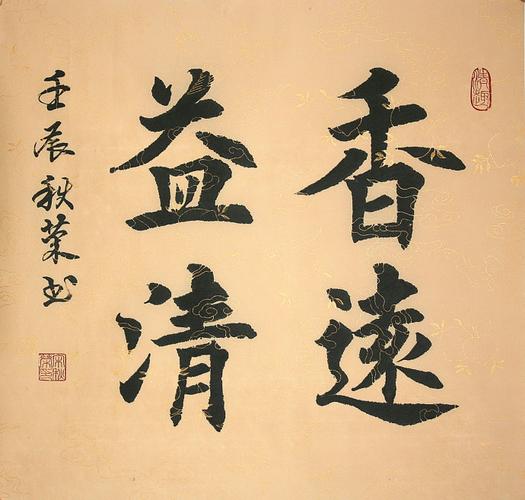 香遠
益清
壬辰秋榮书